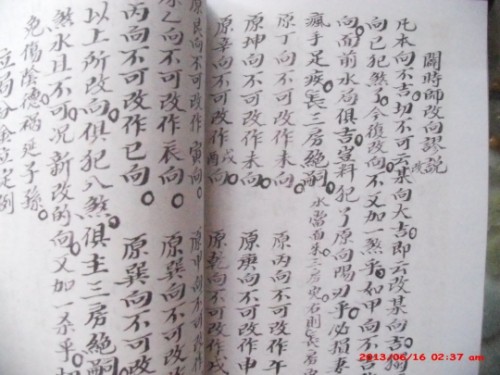 闢時師改向謬說
凡本向不吉切不可云某向大吉即云改某向吉
向已犯煞了今復改向不又加一煞乎如甲向不吉
向面前水局俱吉豈料犯了原向陽刃乎必損妻
瘋手足疾長三房絕嗣水當面來二房
原丁向不可改作未向
原丙向不可改作午
原坤向不可改作未向
原庚向不可改作申
原辛向不可改作戌向
原乾向不可改作戌
原艮向不可改作寅向
原甲向不可改作
原乙向不可改作辰向
原巽向不可改
丙向不可改作巳向
原巽向不可改
以上所改向俱犯八煞俱主三房絕嗣
煞水且不可况新改的向又加一煞乎切
免傷陰德禍延子孫
立局分金立定例
2013/06/16 02:37 am